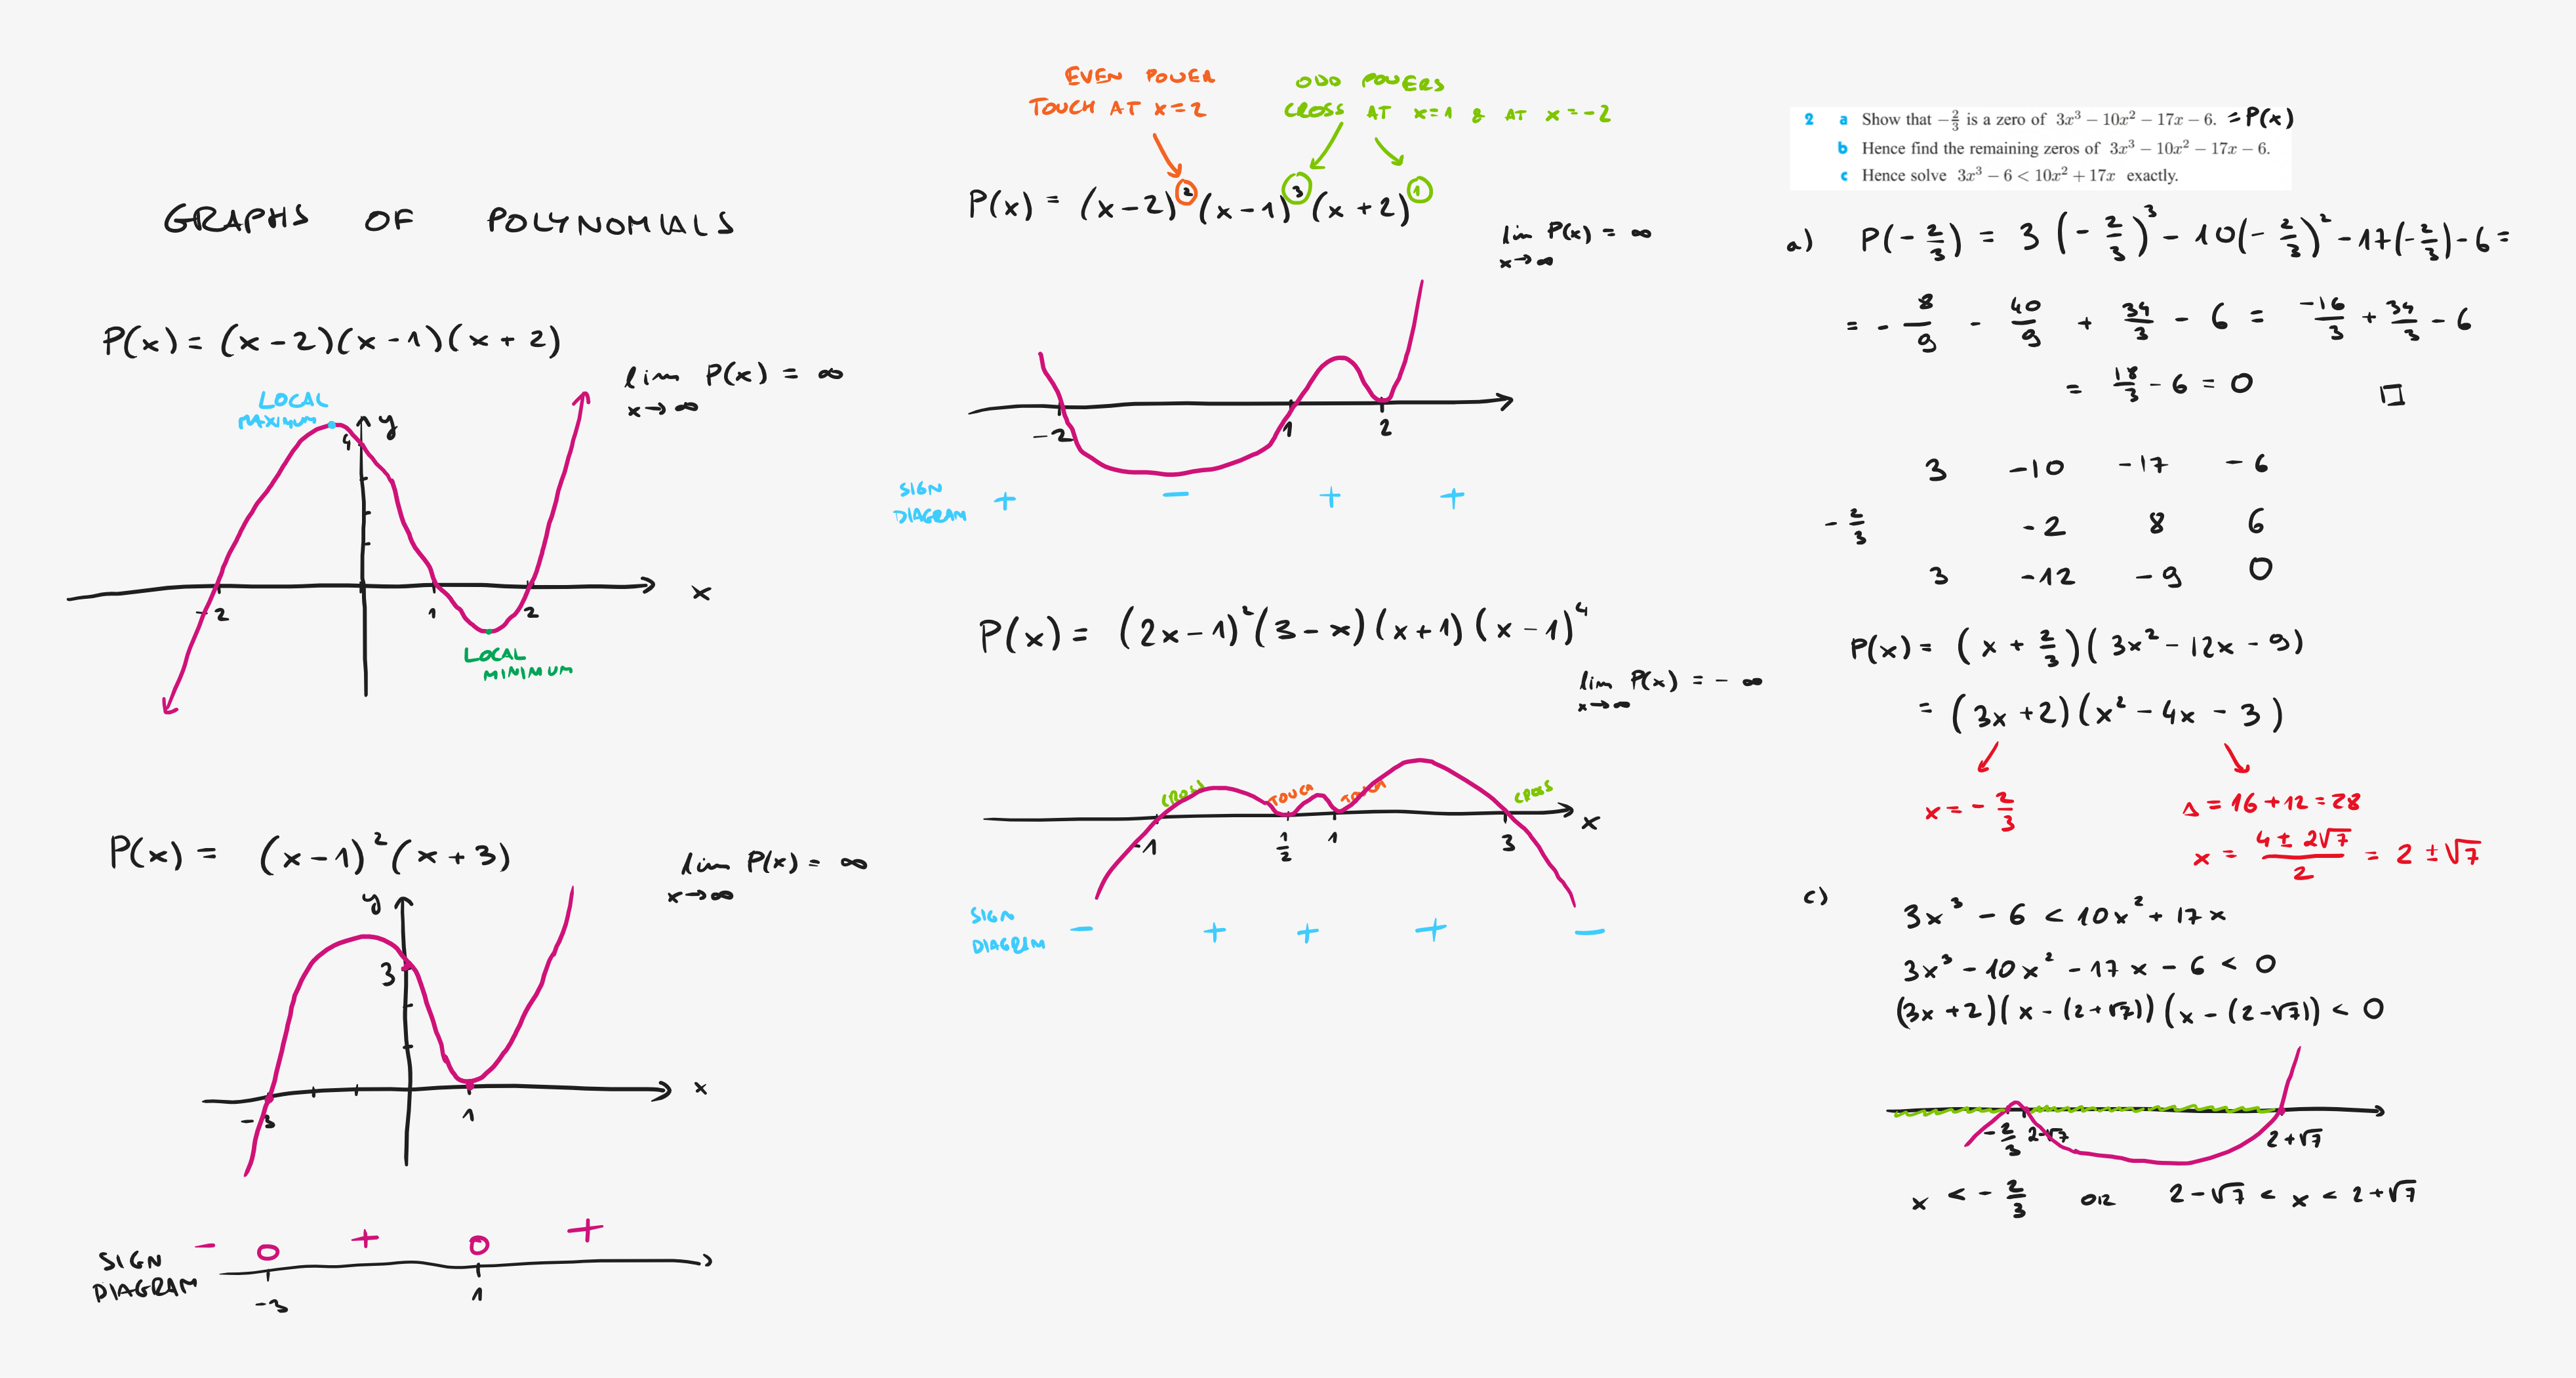 GRAPHS OF POLYNOMIALS
P(x) = (x-2)(x-1)(x+2)
lim P(x) = ∞
x→∞
LOCAL
MAXIMUM
y
4
-2 1 2 x
LOCAL
MINIMUM
P(x) = (x-1)²(x+3)
lim P(x) = ∞
x→∞
y
3
-3 1 x
- 0 + 0 +
SIGN
DIAGRAM
-3 1
EVEN POWER
TOUCH AT x=2
ODD POWERS
CROSS AT x=1 & AT x=-2
P(x) = (x-2)²(x-1)³(x+2)¹
lim P(x) = ∞
x→∞
-2 1 2
SIGN
DIAGRAM
+ - + +
P(x) = (2x-1)²(3-x)(x+1)(x-1)⁴
lim P(x) = -∞
x→∞
CROSS TOUCH TOUCH CROSS
-1 1/2 1 3 x
SIGN
DIAGRAM
- + + + -
2 a Show that -2/3 is a zero of 3x³ - 10x² - 17x - 6. = P(x)
b Hence find the remaining zeros of 3x³ - 10x² - 17x - 6.
c Hence solve 3x³ - 6 < 10x² + 17x exactly.
a) P(-2/3) = 3(-2/3)³ - 10(-2/3)² - 17(-2/3) - 6 =
= - 8/9 - 40/9 + 34/3 - 6 = -16/3 + 34/3 - 6
= 18/3 - 6 = 0 □
3 -10 -17 -6
-2/3 -2 8 6
3 -12 -9 0
P(x) = (x + 2/3)(3x² - 12x - 9)
= (3x+2)(x² - 4x - 3)
x = -2/3
Δ = 16 + 12 = 28
x = (4 ± 2√7)/2 = 2 ± √7
c)
3x³ - 6 < 10x² + 17x
3x³ - 10x² - 17x - 6 < 0
(3x+2)(x - (2+√7))(x - (2-√7)) < 0
-2/3 2-√7 2+√7
x < -2/3 OR 2-√7 < x < 2+√7